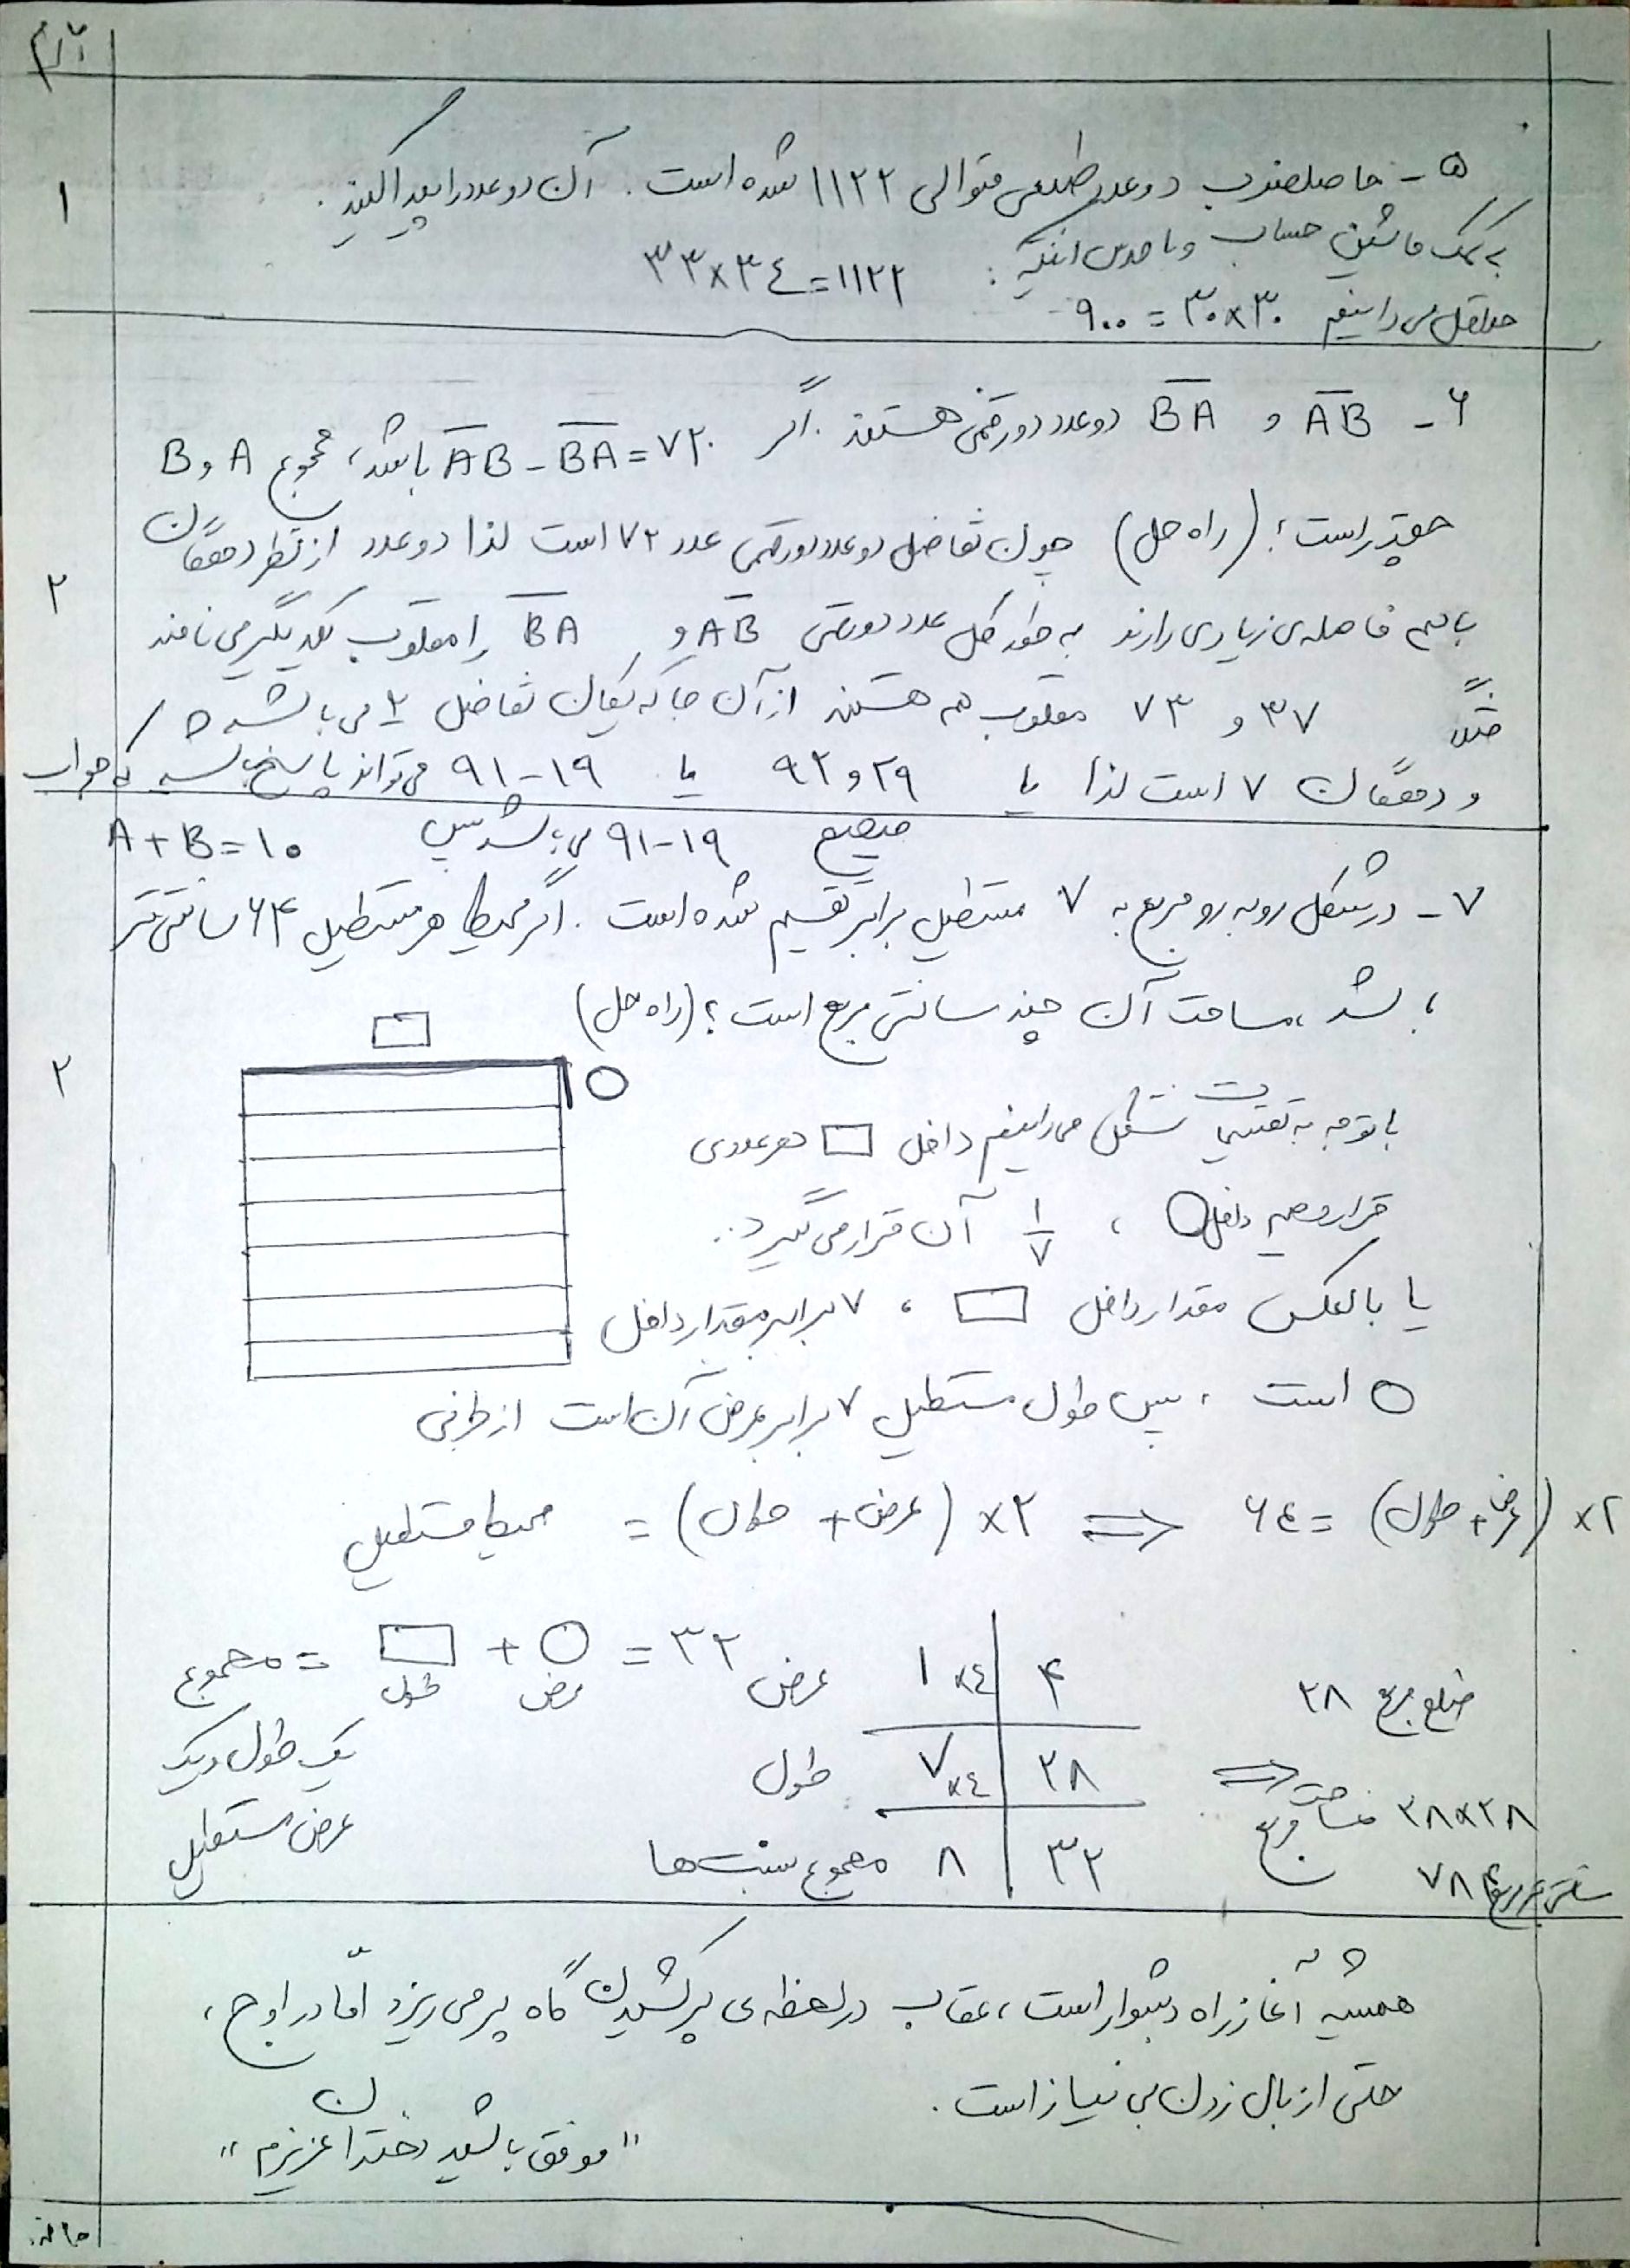 بارم
۱
۵ - حاصلضرب دو عدد طبیعی متوالی ۱۱۲۲ شده است. آن دو عدد را پیدا کنید.
به کمک ماشین حساب و با حدس اینکه: ۳۳×۳۴=۱۱۲۲
حداقل می دانیم ۳۰×۳۰=۹۰۰
۲
۶ - AB و BA دو عدد دورقمی هستند. اگر AB - BA = ۷۲ باشد، مجموع A و B
چقدر است؟ (راه حل) چون تفاضل دو عدد دورقمی عدد ۷۲ است لذا دو عدد از نظر دهگان
با هم فاصله ی زیادی دارند به طور کلی عدد دورقمی AB و BA را مقلوب یکدیگر می نامند
مثلاً ۳۷ و ۷۳ مقلوب هم هستند از آن جا که یکان تفاضل ۲ می باشد
و دهگان ۷ است لذا یا ۲۹ و ۹۲ یا ۱۹-۹۱ می تواند پاسخ باشد که جواب
صحیح ۱۹-۹۱ می باشد پس A+B=۱۰
۲
۷ - در شکل روبه رو مربع به ۷ مستطیل برابر تقسیم شده است. اگر محیط هر مستطیل ۶۴ سانتی متر
باشد، مساحت آن چند سانتی مربع است؟ (راه حل)
با توجه به تقسیمات شکل می دانیم داخل □ هر عددی
قرار دهیم داخل ○ ، ۱/۷ آن قرار می گیرد.
یا بالعکس مقدار داخل □ ، ۷ برابر مقدار داخل
○ است ، پس طول مستطیل ۷ برابر عرض آن است از طرفی
محیط مستطیل = (طول + عرض) ×۲ ⇒ ۶۴ = (طول + عرض) ×۲
مجموع = □ + ○ = ۳۲
طول عرض
یک طول و یک
عرض مستطیل
عرض ۱ ×۴ ۴
طول ۷ ×۴ ۲۸
مجموع نسبت ها ۸ ۳۲
ضلع مربع ۲۸
⇒ مساحت مربع ۲۸×۲۸
۷۸۴ سانتی متر مربع
همیشه آغاز راه دشوار است، عقاب در لحظه ی پر کشیدن گاه پر می ریزد امّا در اوج،
حتی از بال زدن بی نیاز است.
"موفق باشید دخترانِ عزیزم"